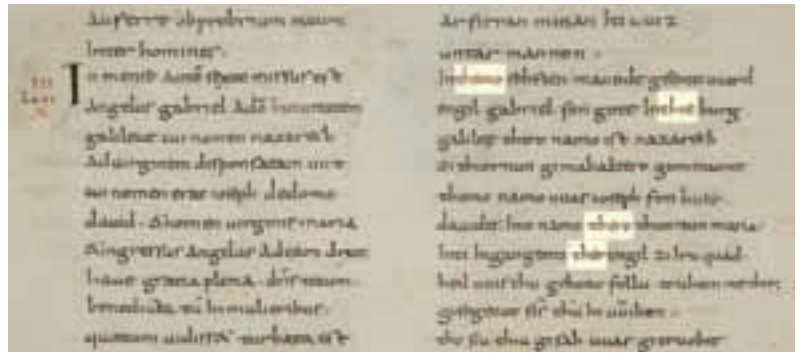 Auferre obprobrium meum
Inter homines.
In mense autē sexto missus est
Angelus gabriel A dō In ciuitatem
galileae cui nomen nazareth
Ad uirginem disponsatam uiro
cui nomen erat ioseph de domo
dauid. & nomen uirginis maria
& ingressus Angelus Ad eam dixit
haue gratia plena dn̄s tecum
benedicta tū In mulieribus.
uidisset turbata est
arfirran minan
untar mannon.
In themo sehsten manude gisentit uuard
engil gabriel fon gote In thie burg
galilee thero namo ist nazareth
zi thiornun gimahaltero gommanne
themo namo uuas ioseph fon huse
dauides Inti namo thero thiornun maria
Inti Ingangenter ther engil zi Iru quad
heil uuis thu gebono follu truhtin
gisegenot sīs thū In uuibun.
tho siu thiu gisah uuas gitruobit